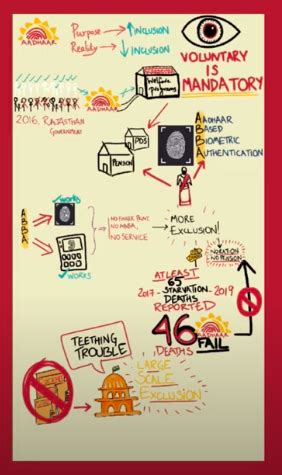 AADHAAR
Purpose → ↑INCLUSION
Reality → ↓INCLUSION
VOLUNTARY
IS
MANDATORY
Welfare programs
AADHAAR
2016, RAJASTHAN
Government
PDS
PENSION
AADHAAR
BASED
BIOMETRIC
AUTHENTICATION
ABBA
WORKS
WORKS
NO FINGER PRINT,
NO ABBA,
NO SERVICE
MORE
EXCLUSION!
NO RATION
NO PENSION
ATLEAST
65
2017 - STARVATION - 2019
DEATHS
REPORTED
46
DEATHS
AADHAAR
FAIL
TEETHING
TROUBLE
LARGE
SCALE
EXCLUSION